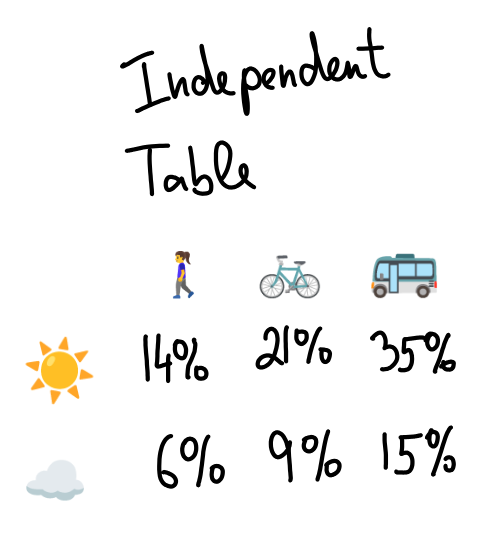 Independent
Table
14% 21% 35%
6% 9% 15%